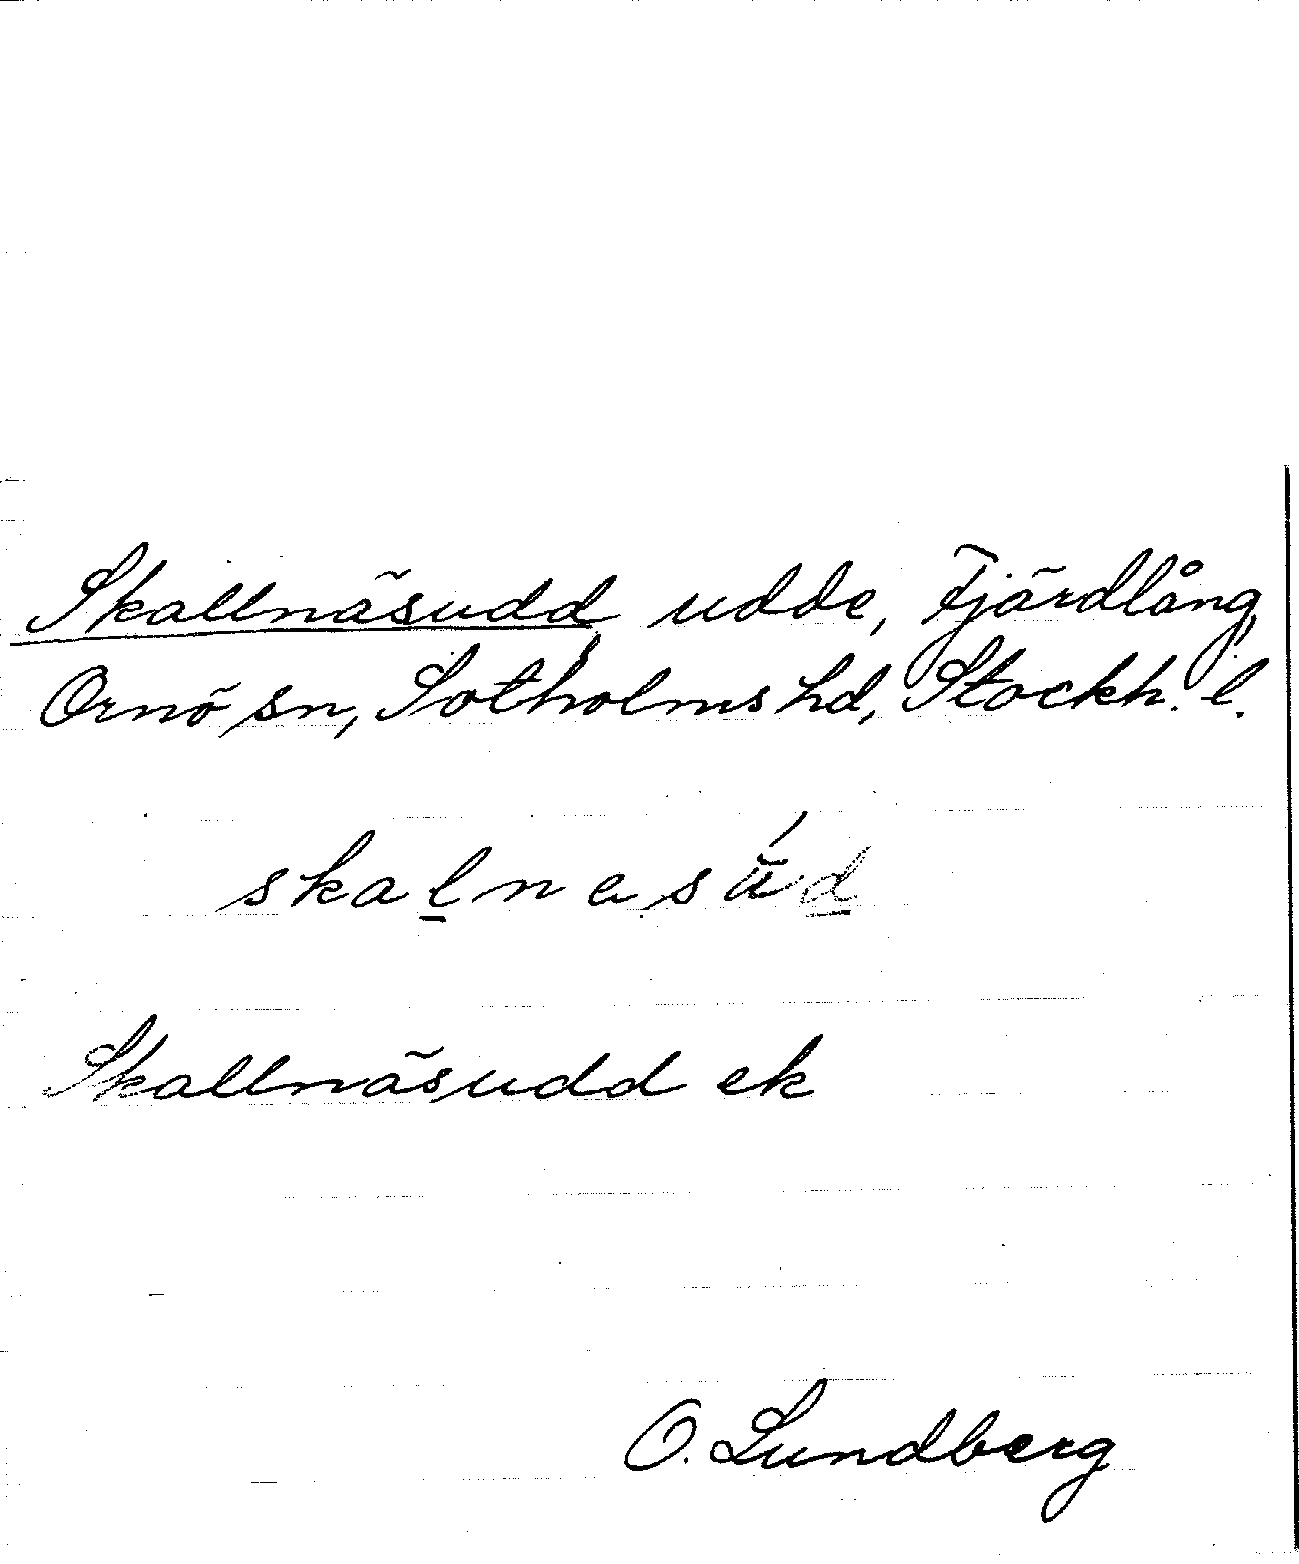 Skallnäsudd, udde, Fjärdlång,
Ornö sn, Sotholms hd, Stockh. l.
skal̲nesúd̲
Skallnäsudd ek
O. Lundberg